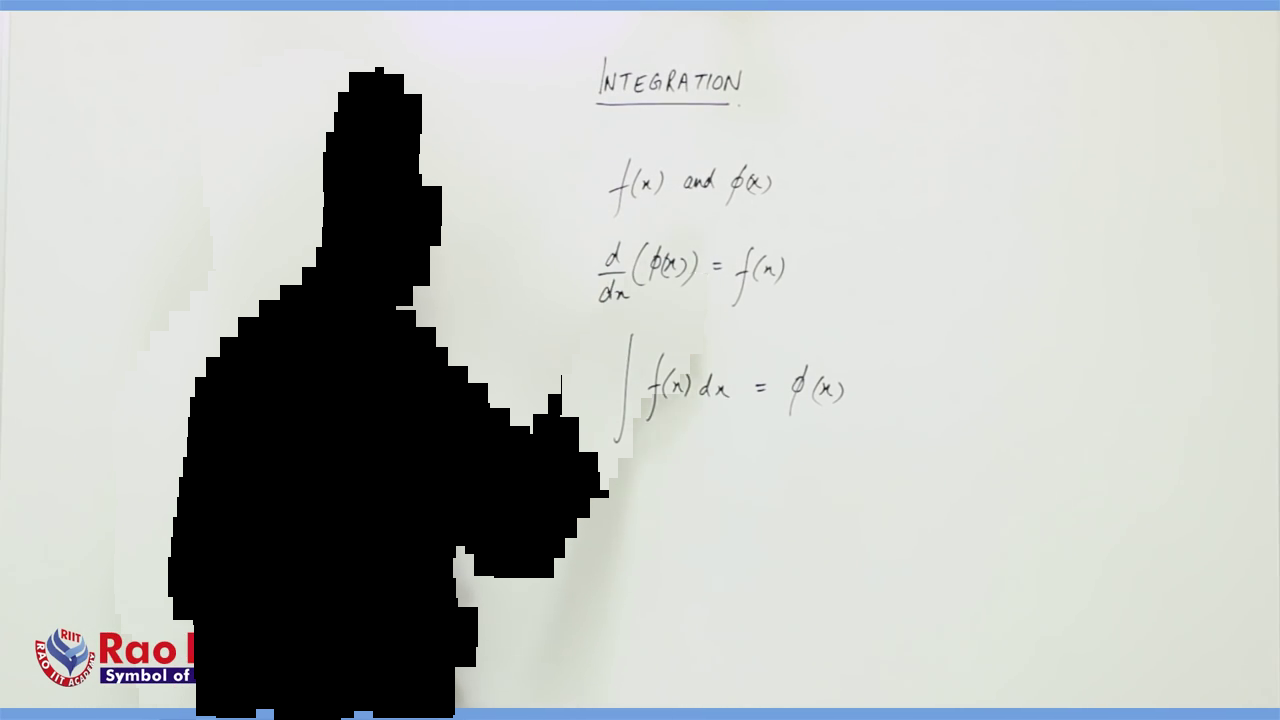 INTEGRATION
f(x) and ϕ(x)
d/dx (ϕ(x)) = f(x)
∫ f(x) dx = ϕ(x)
RIIT
RAO IIT ACADEMY
Rao
Symbol of